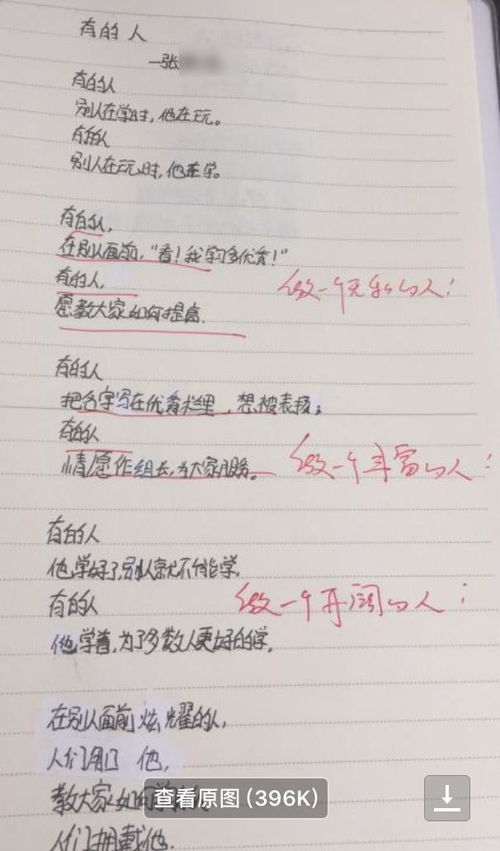 有的人
—张
有的人
别人在学时，他在玩。
有的人
别人在玩时，他在学。
有的人，
在别人面前，“看！我学习多优秀！”
有的人，
愿教大家如何提高.
做一个无私的人；
有的人
把名字写在优秀栏里，想被表扬；
有的人
情愿作组长，为大家服务。
做一个丰富的人；
有的人
他学好了别人就不能学，
有的人
做一个开阔的人；
他学着，为了多数人更好的学。
在别人面前炫耀的人，
人们 他，
教大家如何
人们拥戴他.
查看原图 (396K)